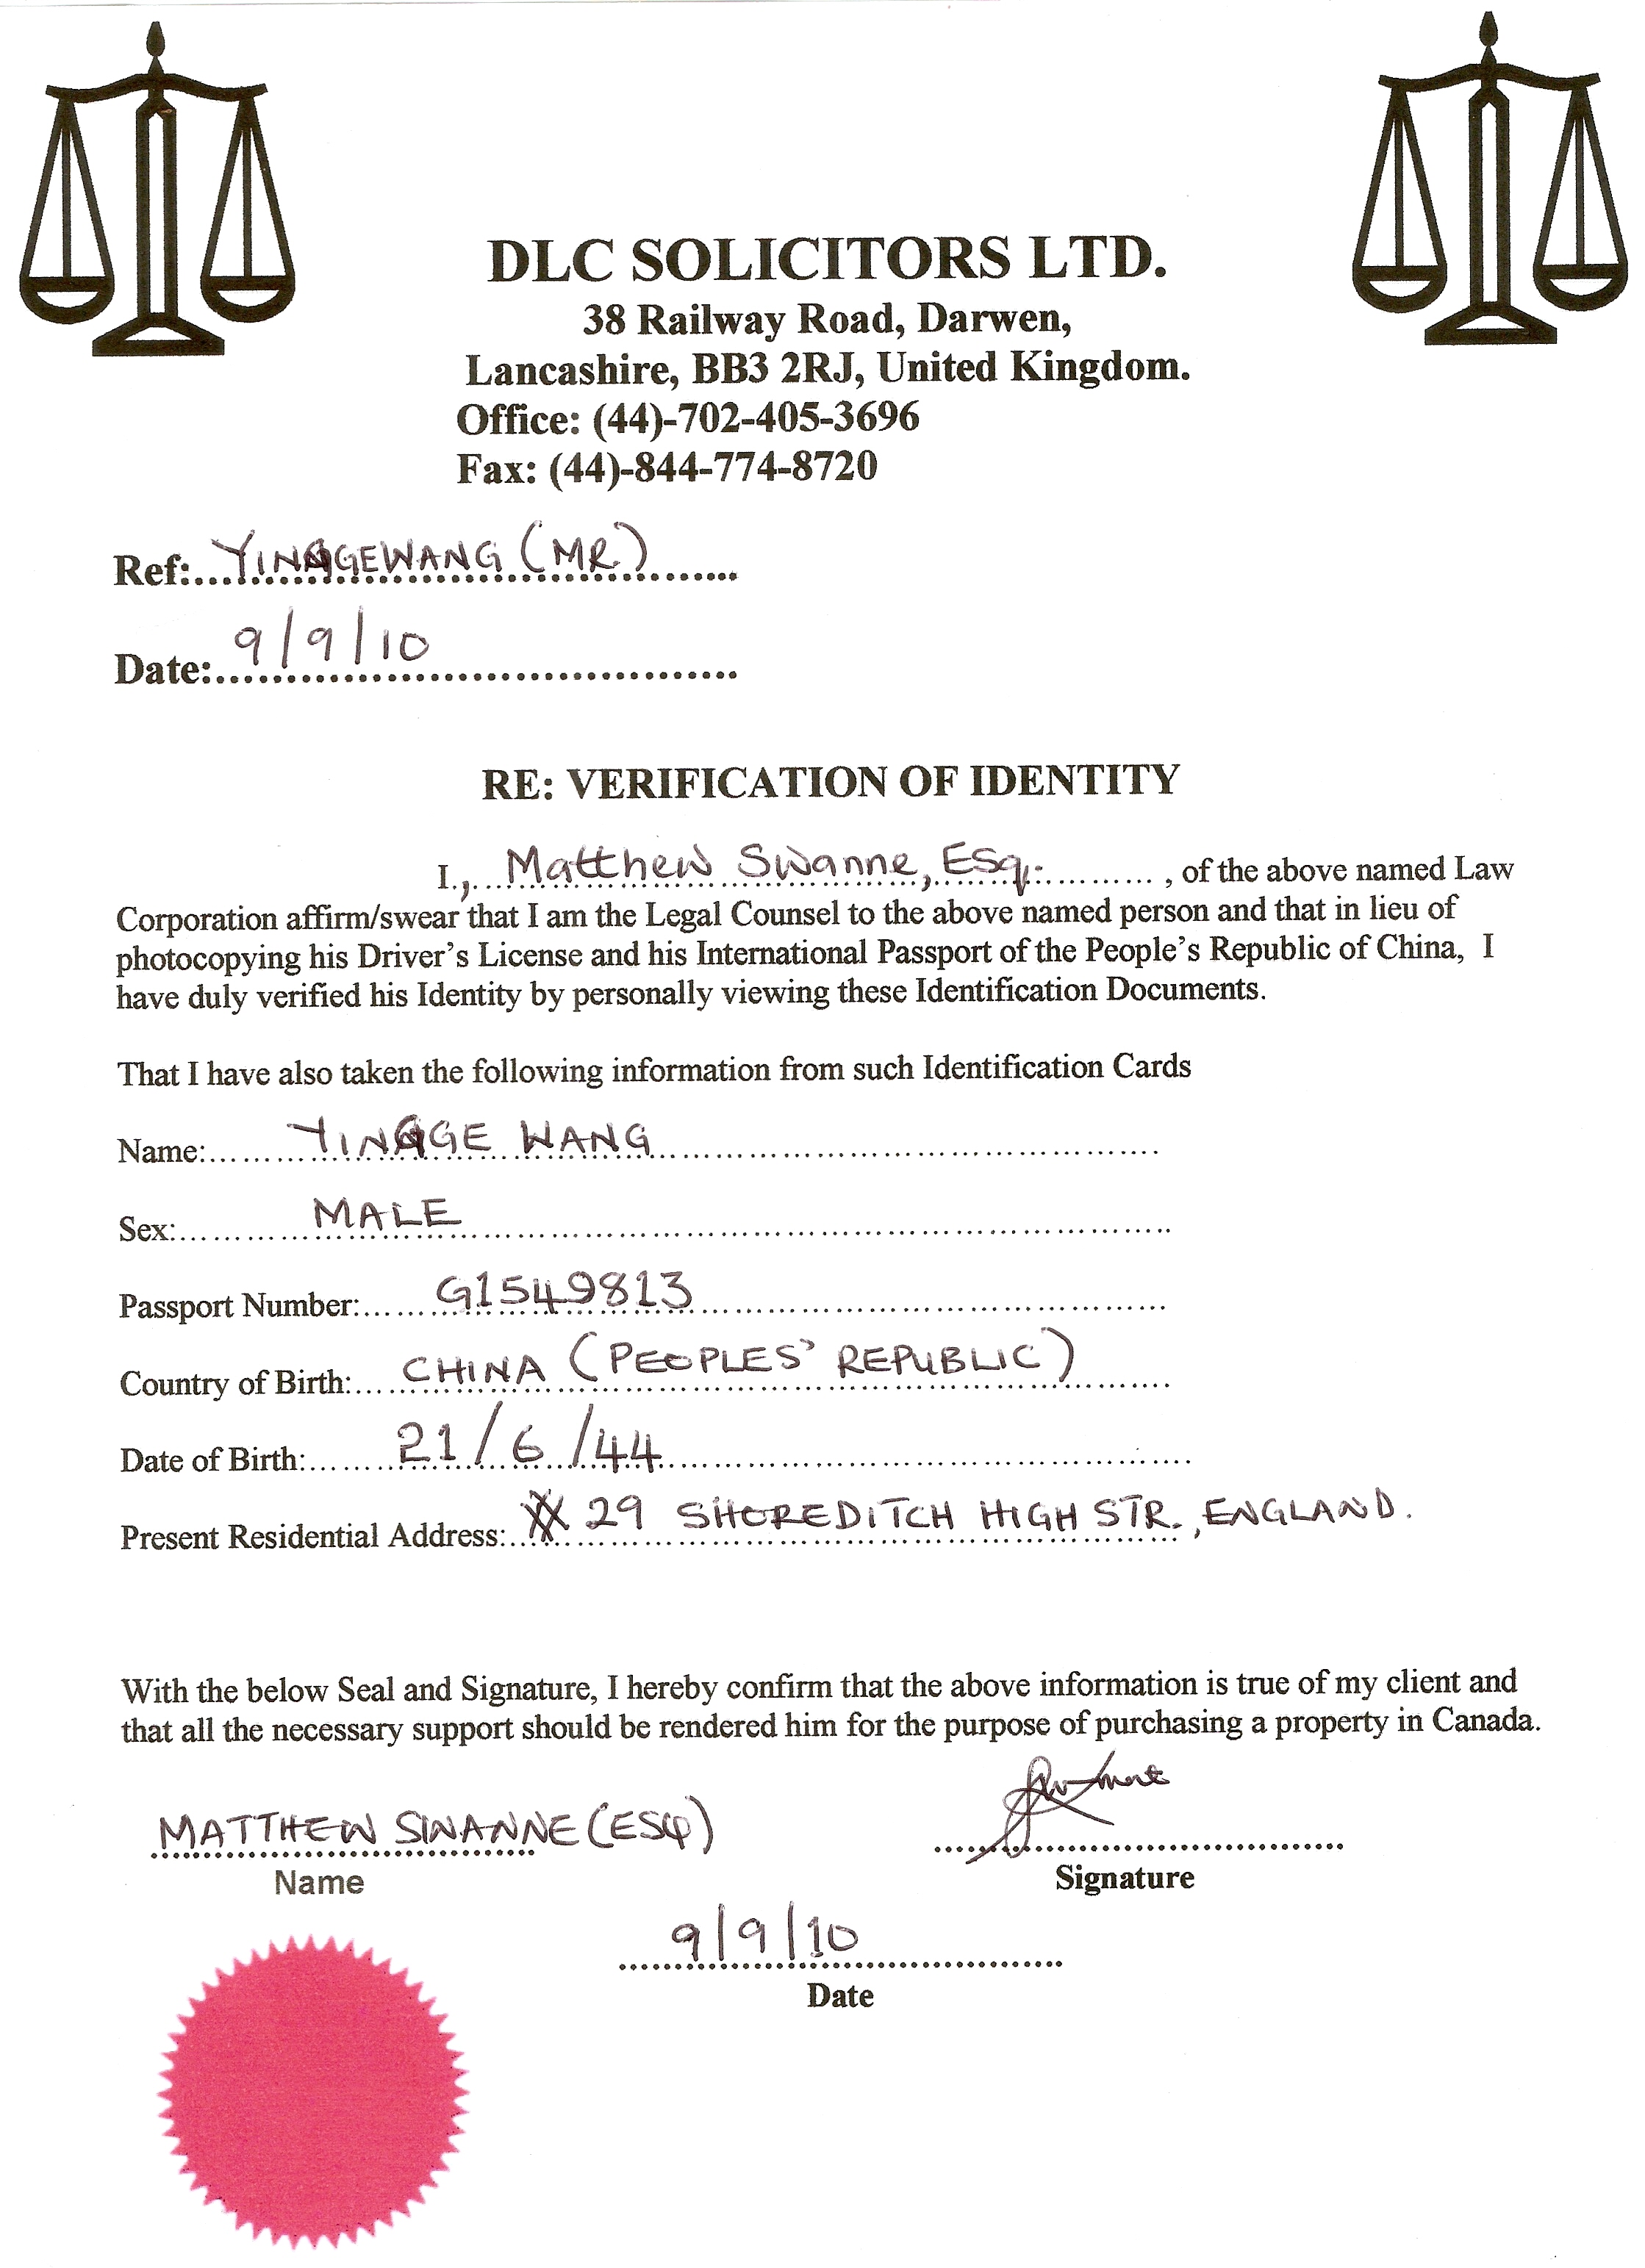 DLC SOLICITORS LTD.
38 Railway Road, Darwen,
Lancashire, BB3 2RJ, United Kingdom.
Office: (44)-702-405-3696
Fax: (44)-844-774-8720
Ref:.... YINGGEWANG (MR.)
Date:.... 9/9/10
RE: VERIFICATION OF IDENTITY
I., Matthew Swanne, Esq. .......... , of the above named Law
Corporation affirm/swear that I am the Legal Counsel to the above named person and that in lieu of
photocopying his Driver's License and his International Passport of the People's Republic of China, I
have duly verified his Identity by personally viewing these Identification Documents.
That I have also taken the following information from such Identification Cards
Name:........ YINGGE WANG
Sex:........ MALE
Passport Number:...... G1549813
Country of Birth:.... CHINA (PEOPLES' REPUBLIC)
Date of Birth:....... 21/6/44
Present Residential Address:.. 29 SHOREDITCH HIGH STR., ENGLAND.
With the below Seal and Signature, I hereby confirm that the above information is true of my client and
that all the necessary support should be rendered him for the purpose of purchasing a property in Canada.
MATTHEW SWANNE (ESQ)
Name
Signature
9/9/10
Date